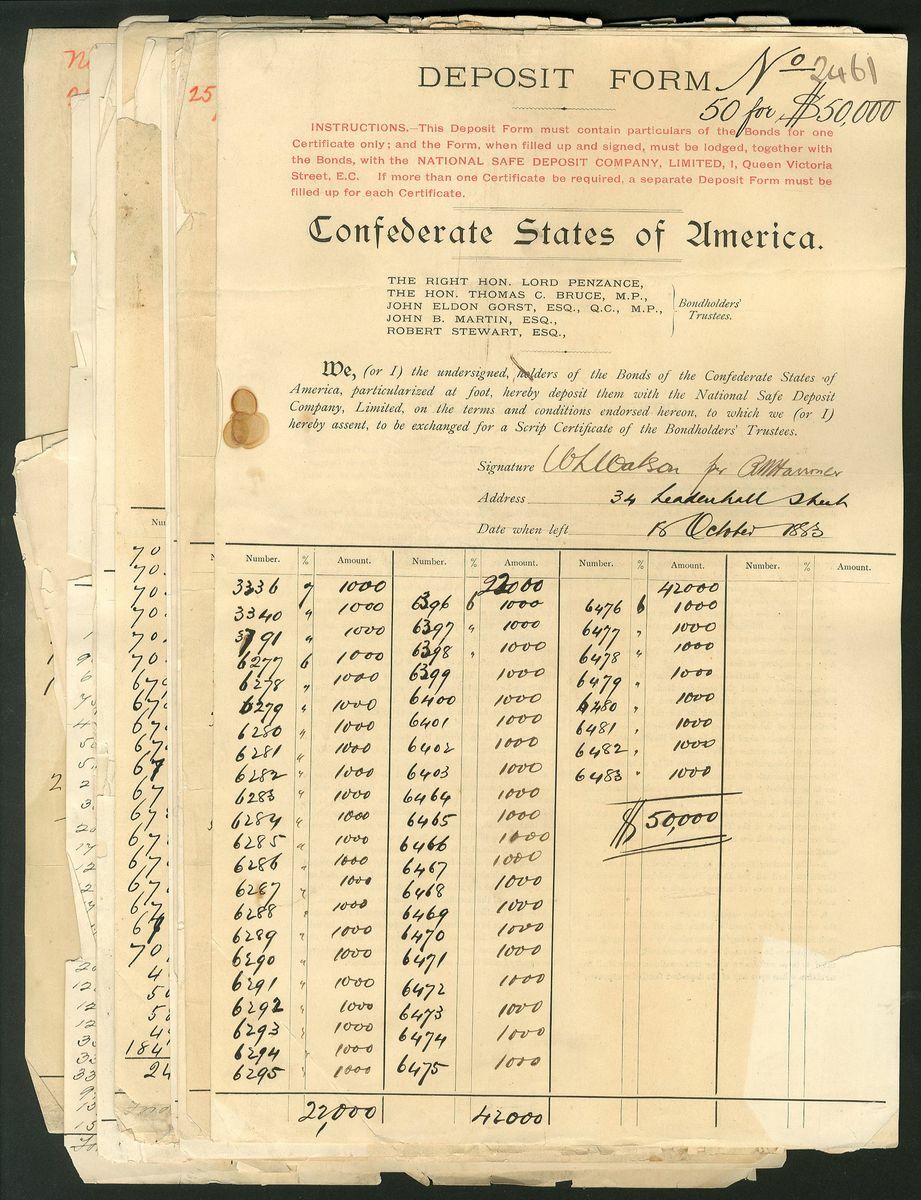 DEPOSIT FORM. No 2461
50 for $50,000
INSTRUCTIONS.—This Deposit Form must contain particulars of the Bonds for one
Certificate only; and the Form, when filled up and signed, must be lodged, together with
the Bonds, with the NATIONAL SAFE DEPOSIT COMPANY, LIMITED, 1, Queen Victoria
Street, E.C. If more than one Certificate be required, a separate Deposit Form must be
filled up for each Certificate.
Confederate States of America.
THE RIGHT HON. LORD PENZANCE,
THE HON. THOMAS C. BRUCE, M.P.,
JOHN ELDON GORST, ESQ., Q.C., M.P.,
JOHN B. MARTIN, ESQ.,
ROBERT STEWART, ESQ.,
Bondholders'
Trustees.
We, (or I) the undersigned, holders of the Bonds of the Confederate States of
America, particularized at foot, hereby deposit them with the National Safe Deposit
Company, Limited, on the terms and conditions endorsed hereon, to which we (or I)
hereby assent, to be exchanged for a Scrip Certificate of the Bondholders' Trustees.
Signature Watson for
Address 34 Leadenhall Street
Date when left 18 October 1883
Number. % Amount. Number. % Amount. Number. % Amount. Number. % Amount.
22000 42000
3336 7 1000 6396 6 1000 6476 6 1000
3340 " 1000 6397 " 1000 6477 " 1000
3791 " 1000 6398 " 1000 6478 " 1000
6277 6 1000 6399 1000 6479 " 1000
6278 " 1000 6400 1000 6480 " 1000
6279 " 1000 6401 1000 6481 " 1000
6280 " 1000 6402 1000 6482 " 1000
6281 " 1000 6403 1000 6483 " 1000
6282 " 1000 6464 1000 $50,000
6283 " 1000 6465 1000
6284 " 1000 6466 1000
6285 " 1000 6467 1000
6286 " 1000 6468 1000
6287 " 1000 6469 1000
6288 " 1000 6470 1000
6289 " 1000 6471 1000
6290 " 1000 6472 1000
6291 " 1000 6473 1000
6292 " 1000 6474 1000
6293 " 1000 6475 1000
6294 " 1000
6295 1000
22,000 42000